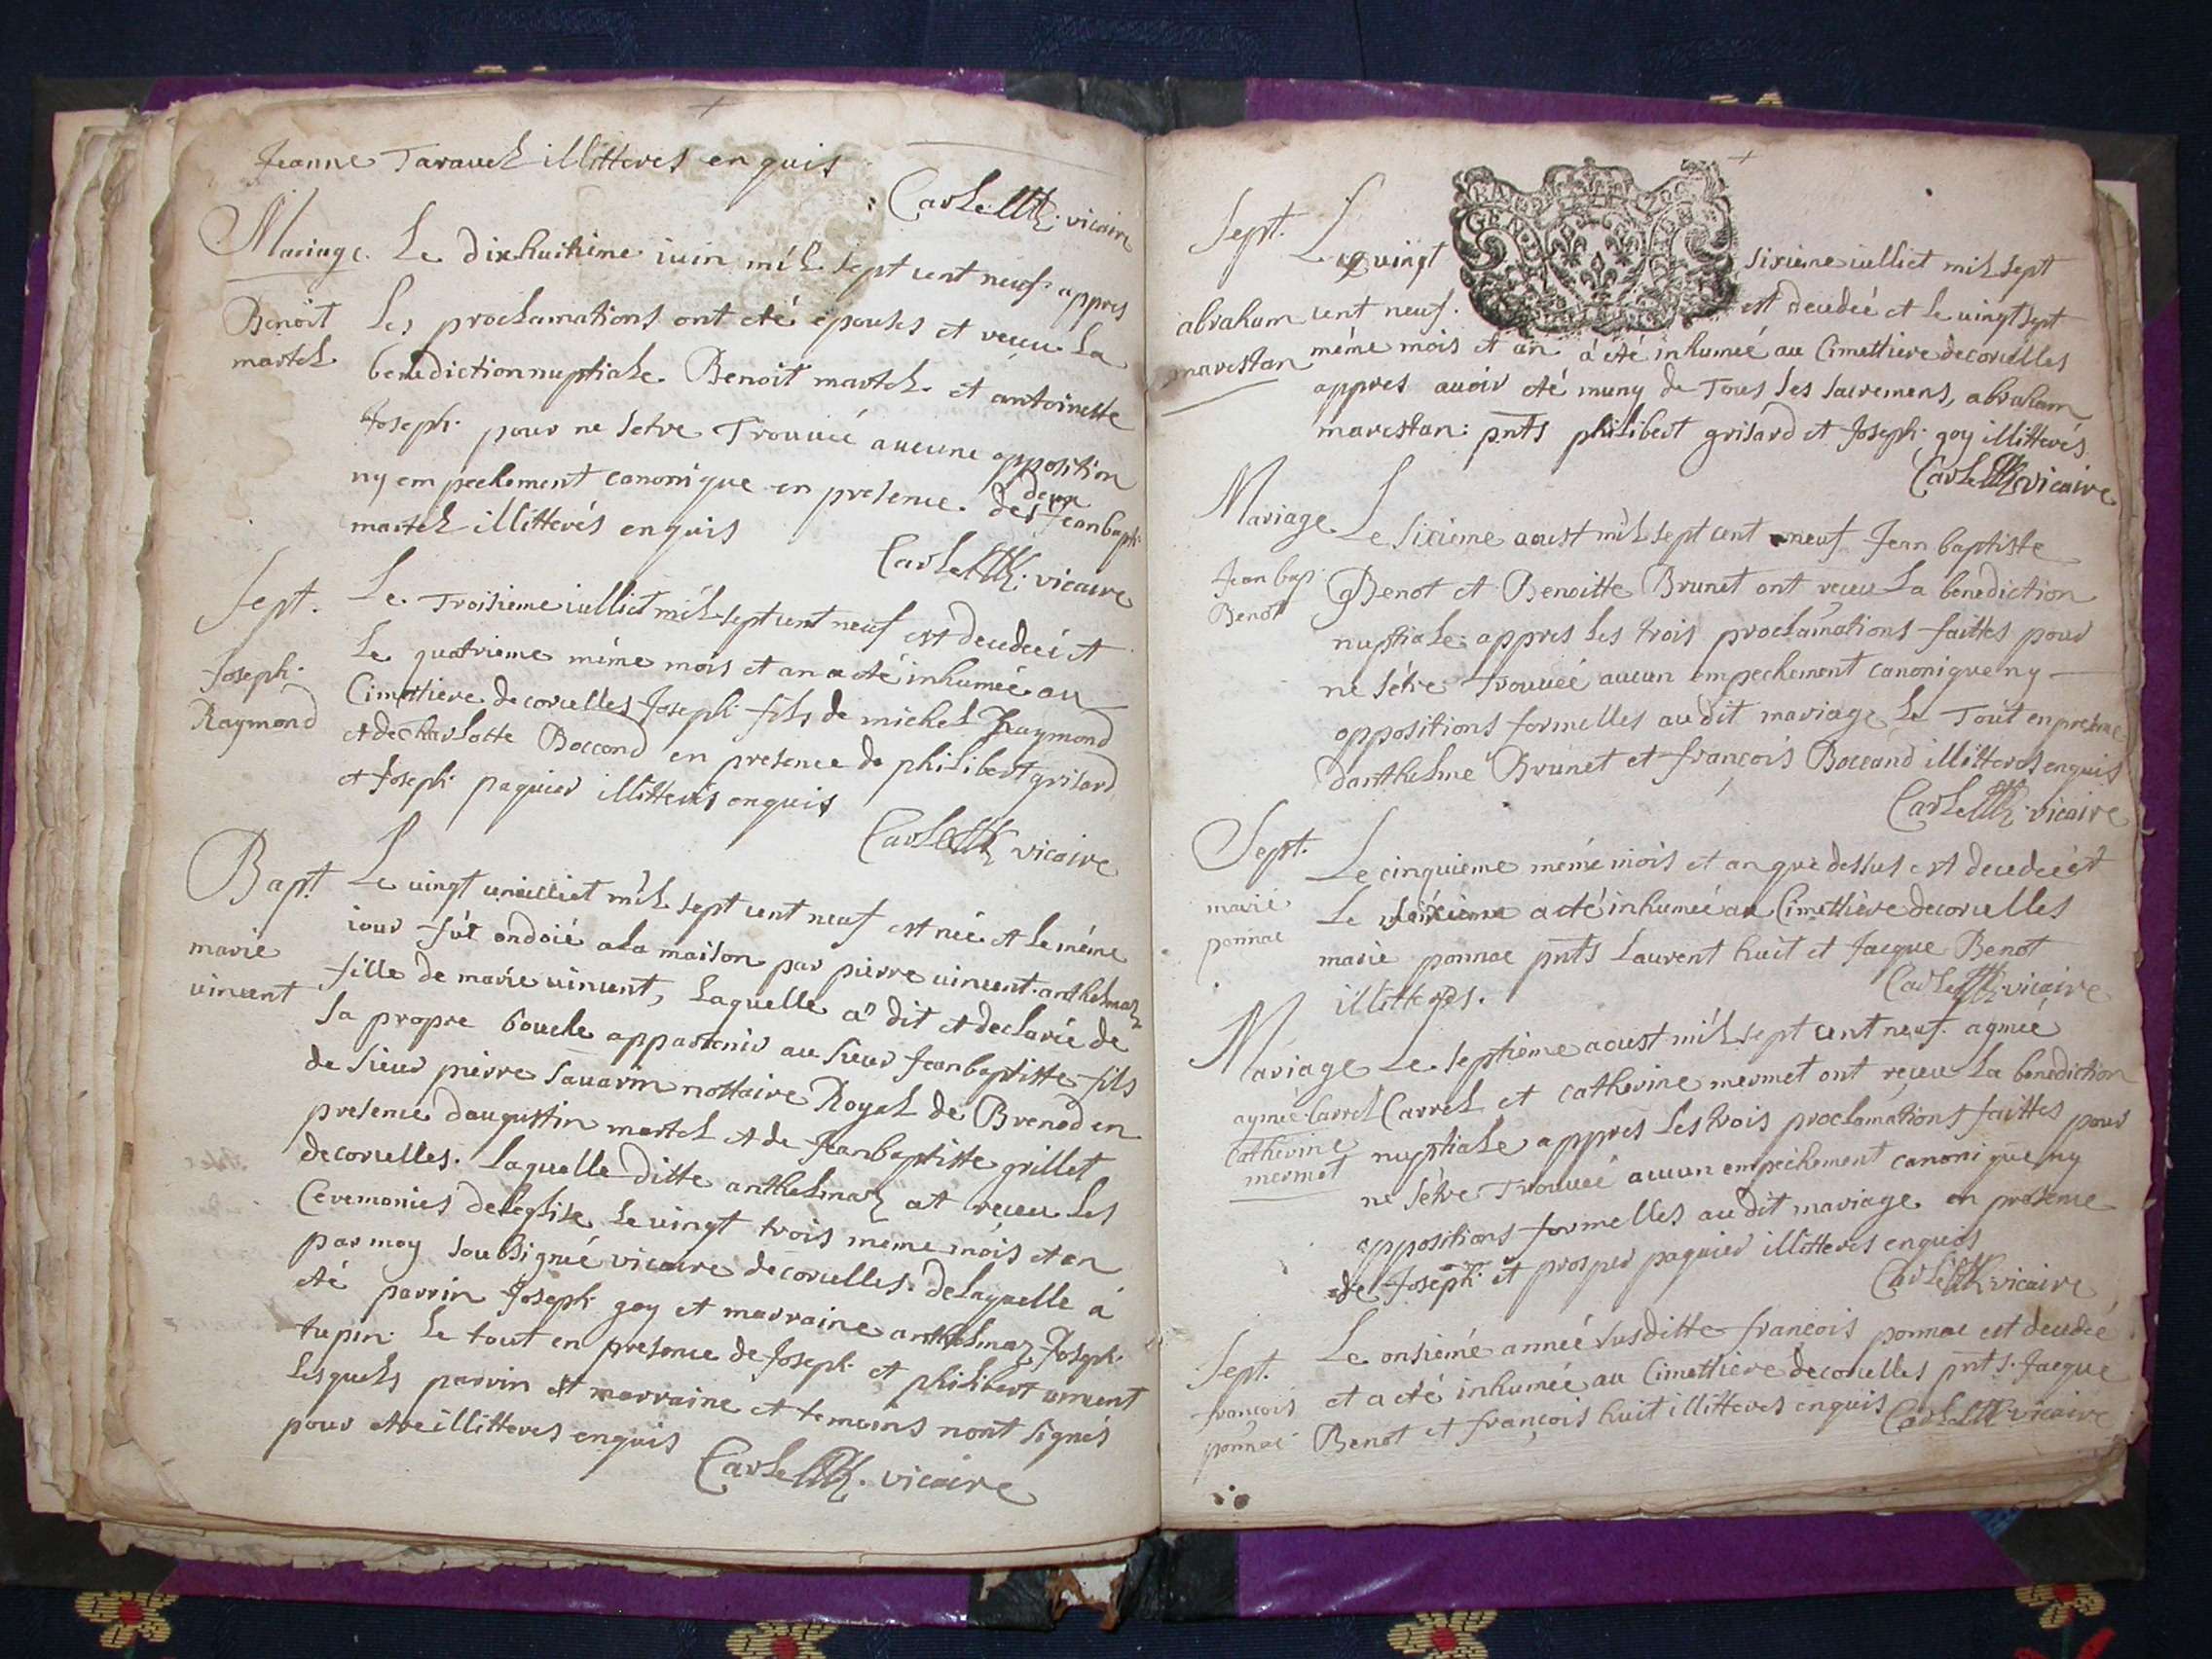 Jeanne Taravel illitteres enquis
Carle vicaire
Mariage. Le dixhuitieme iuin mil sept cent neuf appres
Benoit les proclamations ont eté epousés et receu la
martel benediction nuptiale Benoit martel et antoinette
Joseph pour ne setre Trouvéé aucune opposition
ny empechement canonique en presence de deux Jean bapt.
martel illitterés enquis
vicaire
Sept. Le Troisieme iulliet mil sept cent neuf est decedeé et
le quatrieme méme mois et an a eté inhumeé au
Joseph Cimettiere de corcelles Joseph fils de michel Raymond
Raymond et de Charlotte Boccond en presence de philibert grisard
et Joseph paquier illitterés enquis
vicaire
Bapt. Le vingt un iulliet mil sept cent neuf est née et le méme
iour fút ondoié a la maison par pierre vincent anthelmaz
marie fille de marie vincent, laquelle a dit et declaré de
vincent sa propre bouche appartenir au sieur Jean baptiste fils
de sieur pierre savarin nottaire Royal de Brenod en
presence daugustin martel et de Jean baptiste grillet
de corcelles. laquelle ditte anthelmaz at receu les
Ceremonies de leglise le vingt trois méme mois et an
par moy soubsigné vicaire de corcelles. de laquelle á
eté parrin Joseph goy et marraine anthelmaz Joseph
tupin. le tout en presence de Joseph et philibert vincent
lesquels parrin et marraine et temoins nont signés
pour etre illitteres enquis
vicaire
GEN
Sept. Le vingt sixieme iulliet mil sept
abraham cent neuf. est decedeé et le vingt sept
marestan méme mois et an á eté inhumeé au Cimettiere de corcelles
appres avoir eté muny de Tous les sacremens, abraham
marestan: pnts philibert grisard et Joseph goy illitterés
vicaire
Mariage Le sixieme aoust mil sept cent neuf Jean baptiste
Jean bap. Benot et Benoitte Brunet ont receu la benediction
Benot nuptiale appres les trois proclamations faittes pour
ne sétre trouvéé aucun empechement canonique ny
oppositions formelles au dit mariage le Tout en presence
danthelme Brunet et françois Boccond illitteres enquis
vicaire
Sept. Le cinquieme méme mois et an que dessus est decedeé et
marie le sixieme a eté inhumeé au Cimettiere de corcelles
ponnac marie ponnac pnts Laurent huit et Jacque Benot
illitterés.
vicaire
Mariage Le septieme aoust mil sept cent neuf. aymée
aymée Carrel Carrel et catherine mermet ont receu la benediction
Catherine nuptiale appres les trois proclamations faittes pour
mermet ne sétre Trouvéé aucun empéchement canonique ny
oppositions formelles au dit mariage en presence
de Joseph et prosper paquier illitteres enquis
vicaire
Sept. Le onsiémé année susditte françois ponnac est decedée
francois et a eté inhumeé au Cimettiere de corcelles pnts. Jacque
ponnac Benot et françois huit illitteres enquis vicaire